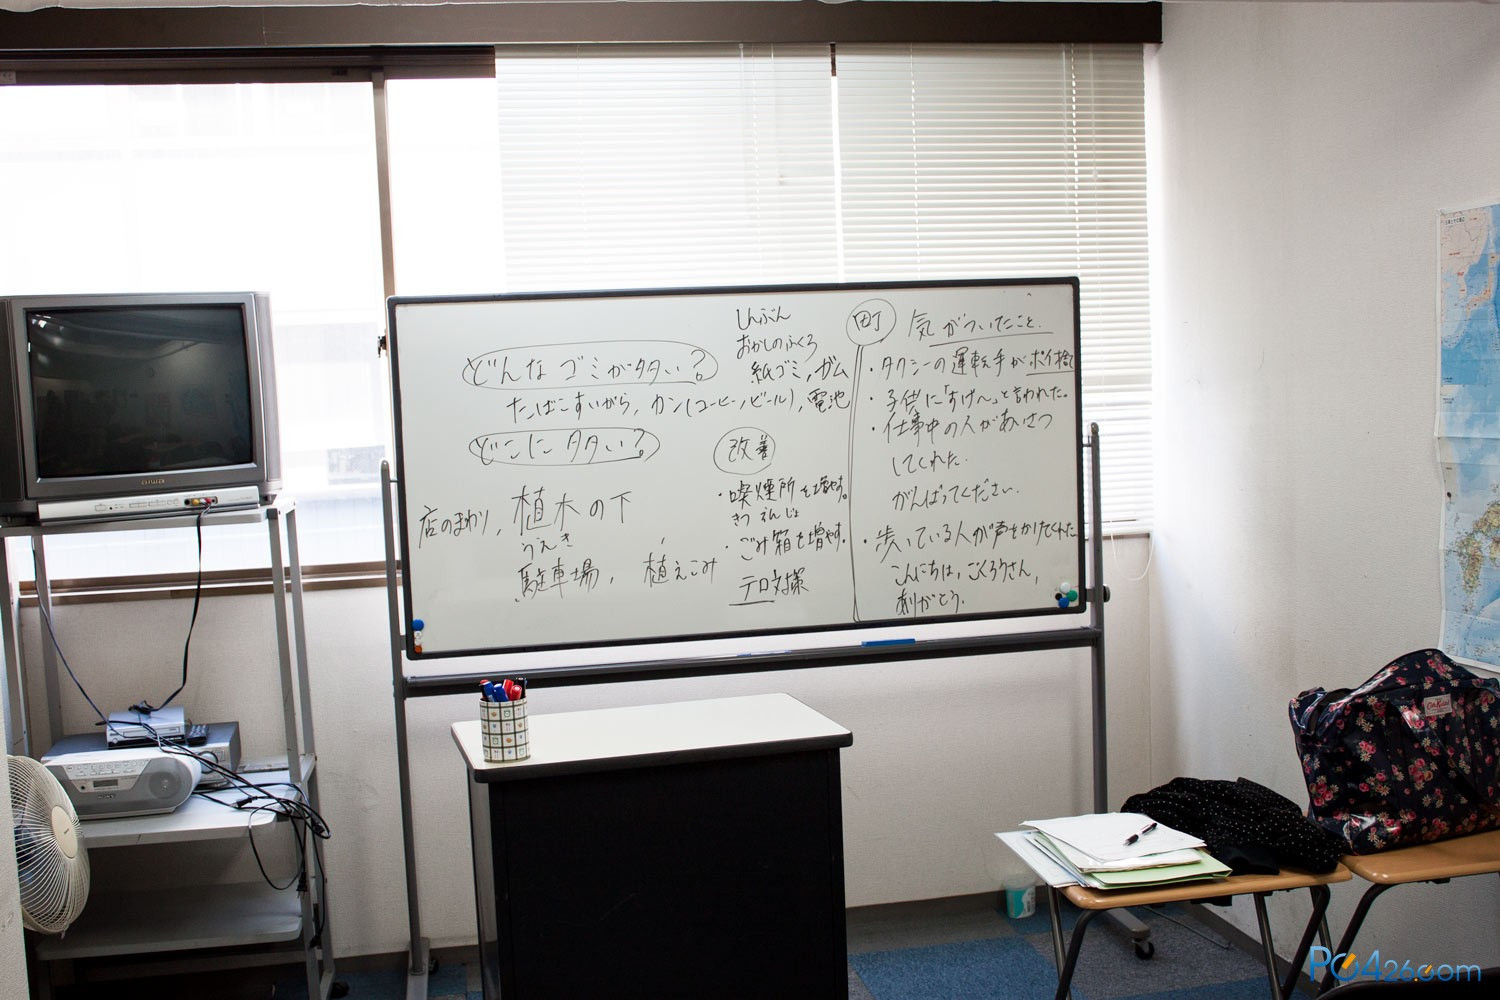 どんなゴミが多い?
しんぶん
おかしのふくろ
紙ゴミ, ガム
たばこすいがら, カン(コーヒー/ビール), 電池
どこに多い?
店のまわり, 植木の下
うえき
駐車場, 植えこみ
改善
・喫煙所を増やす。
きつえんじょ
・ごみ箱を増やす。
テロ対策
町 気がついたこと.
・タクシーの運転手がポイ捨て
・子供に「すげ〜」と言われた。
・仕事中の人があいさつ
してくれた.
がんばってください.
・歩いている人が声をかけてくれた
こんにちは, ごくろうさん,
ありがとう.
aiwa
SONY
Cath Kidston
PO426.com